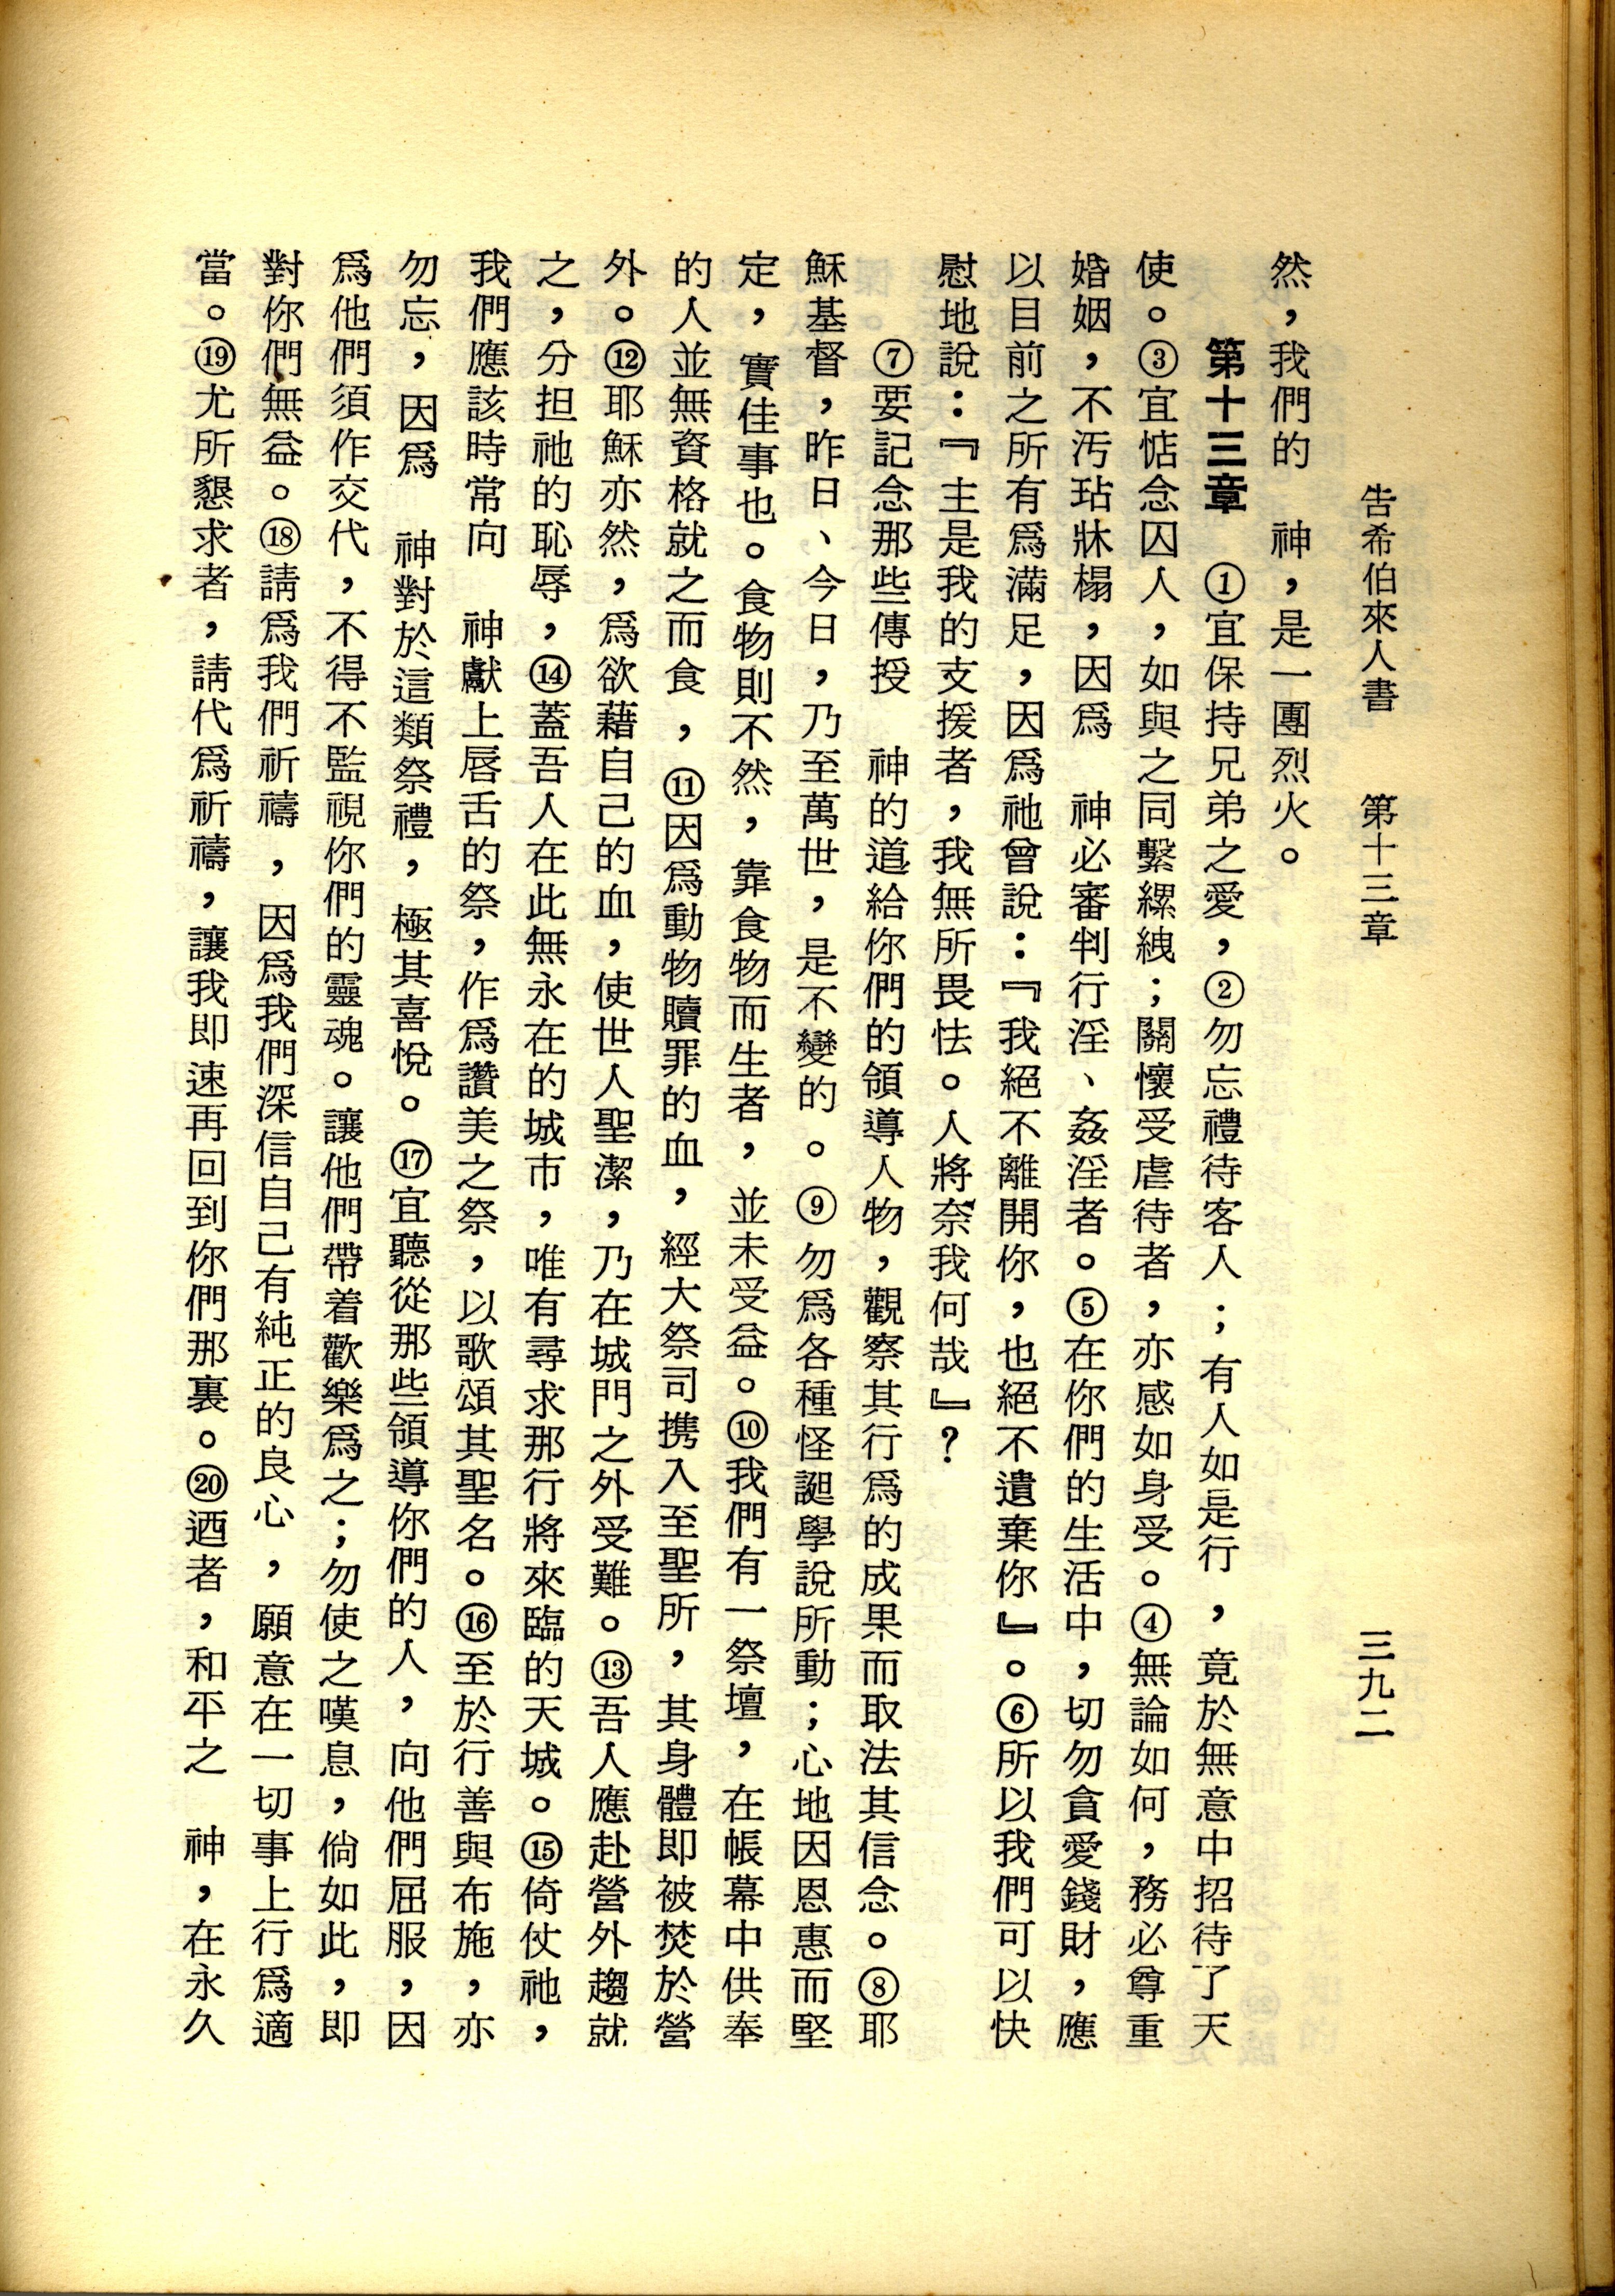 告希伯來人書　第十三章　三九二
然，我們的　神，是一團烈火。
第十三章　①宜保持兄弟之愛，②勿忘禮待客人；有人如是行，竟於無意中招待了天
使。③宜惦念囚人，如與之同繫縲絏；關懷受虐待者，亦感如身受。④無論如何，務必尊重
婚姻，不汚玷牀榻，因爲　神必審判行淫、姦淫者。⑤在你們的生活中，切勿貪愛錢財，應
以目前之所有爲滿足，因爲祂曾說：『我絕不離開你，也絕不遺棄你』。⑥所以我們可以快
慰地說：『主是我的支援者，我無所畏怯。人將奈我何哉』？
⑦要記念那些傳授　神的道給你們的領導人物，觀察其行爲的成果而取法其信念。⑧耶
穌基督，昨日、今日，乃至萬世，是不變的。⑨勿爲各種怪誕學說所動；心地因恩惠而堅
定，實佳事也。食物則不然，靠食物而生者，並未受益。⑩我們有一祭壇，在帳幕中供奉
的人並無資格就之而食，⑪因爲動物贖罪的血，經大祭司携入至聖所，其身體即被焚於營
外。⑫耶穌亦然，爲欲藉自己的血，使世人聖潔，乃在城門之外受難。⑬吾人應赴營外趨就
之，分担祂的恥辱，⑭蓋吾人在此無永在的城市，唯有尋求那行將來臨的天城。⑮倚仗祂，
我們應該時常向　神獻上唇舌的祭，作爲讚美之祭，以歌頌其聖名。⑯至於行善與布施，亦
勿忘，因爲　神對於這類祭禮，極其喜悅。⑰宜聽從那些領導你們的人，向他們屈服，因
爲他們須作交代，不得不監視你們的靈魂。讓他們帶着歡樂爲之；勿使之嘆息，倘如此，即
對你們無益。⑱請爲我們祈禱，因爲我們深信自己有純正的良心，願意在一切事上行爲適
當。⑲尤所懇求者，請代爲祈禱，讓我即速再回到你們那裏。⑳迺者，和平之　神，在永久